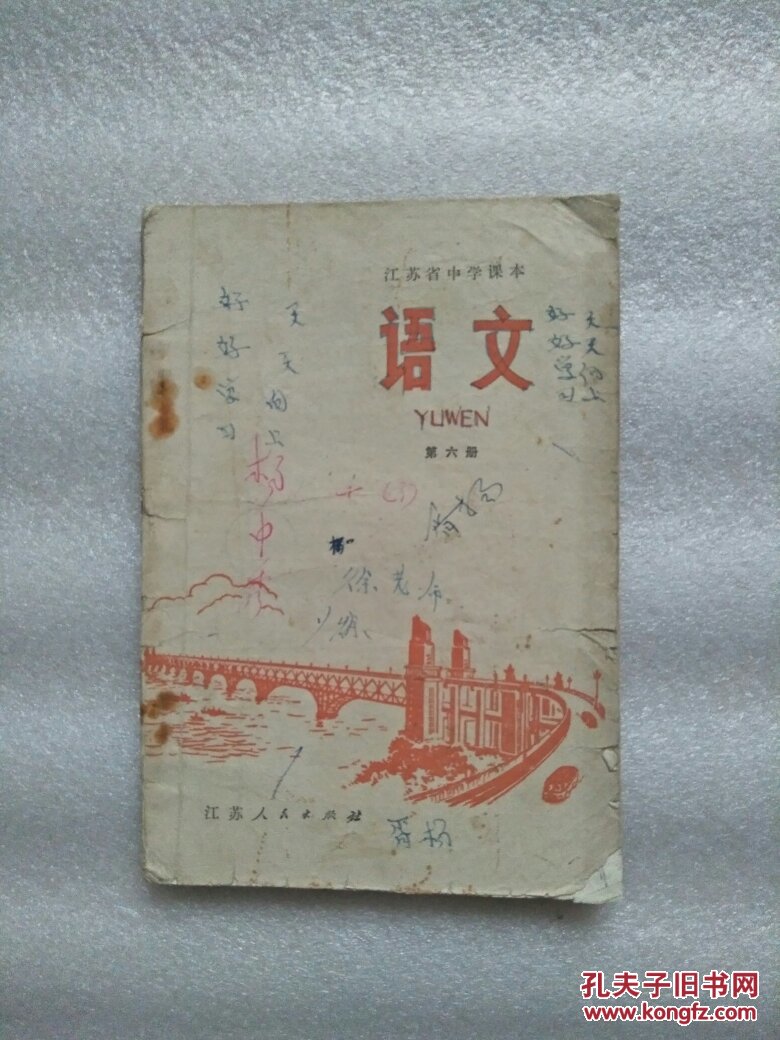 江苏省中学课本
语文
YUWEN
第六册
好好学习
天天向上
好好学习
天天向上
杨中
杨
徐
江苏人民出版社
杨
孔夫子旧书网
www.kongfz.com